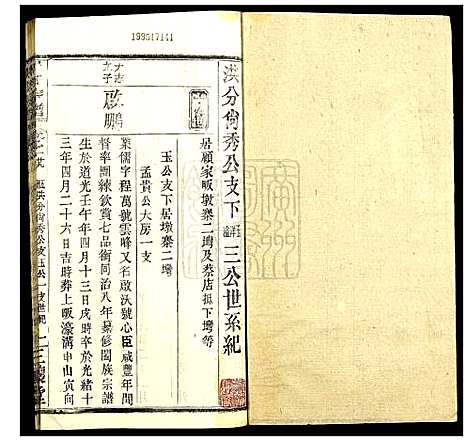 199517141
洪分尙秀公支下玉三公世系紀
居顧家畈墩寨二塆及蔡店坻下塆等
玉公支下居墩寨二塆
孟貴公大房一支
大志
九子
啟鵬
業儒字程萬號雲峰又名啟沃號心臣咸豐年間
督率團練欽賞七品銜同治八年纂修闔族宗譜
生於道光壬午年四月十三日戌時卒於光緒十
三年四月二十六日吉時葬上畈濠溝申山寅向
洪分尙秀公支玉公一支世紀